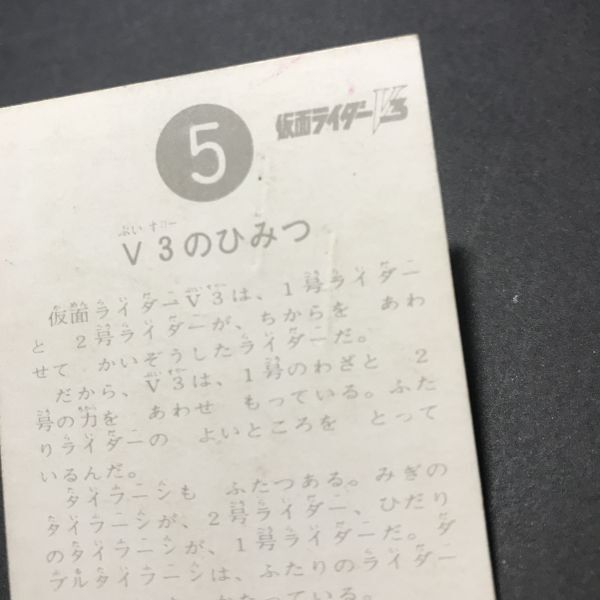 5
仮面ライダーV3
ぶいすりー
V3のひみつ
仮面ライダーV3は、1号ライダー
と 2号ライダーが、ちからを あわ
せて かいぞうしたライダーだ。
だから、V3は、1号のわざと 2
号の力を あわせ もっている。ふた
りライダーの よいところを とって
いるんだ。
タイフーンも ふたつある。みぎの
タイフーンが、2号ライダー、ひだり
のタイフーンが、1号ライダーだ。ダ
ブルタイフーンは、ふたりのライダー